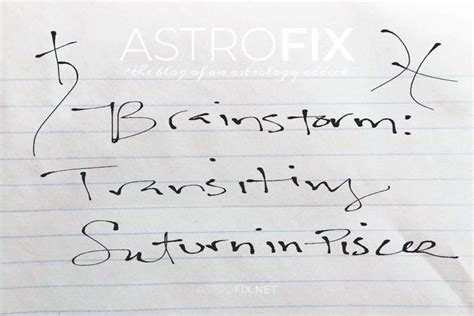 ASTROFIX
*the blog of an astrology addict
♄ ♓
Brainstorm:
Transiting
Saturn in Pisces
ASTROFIX.NET